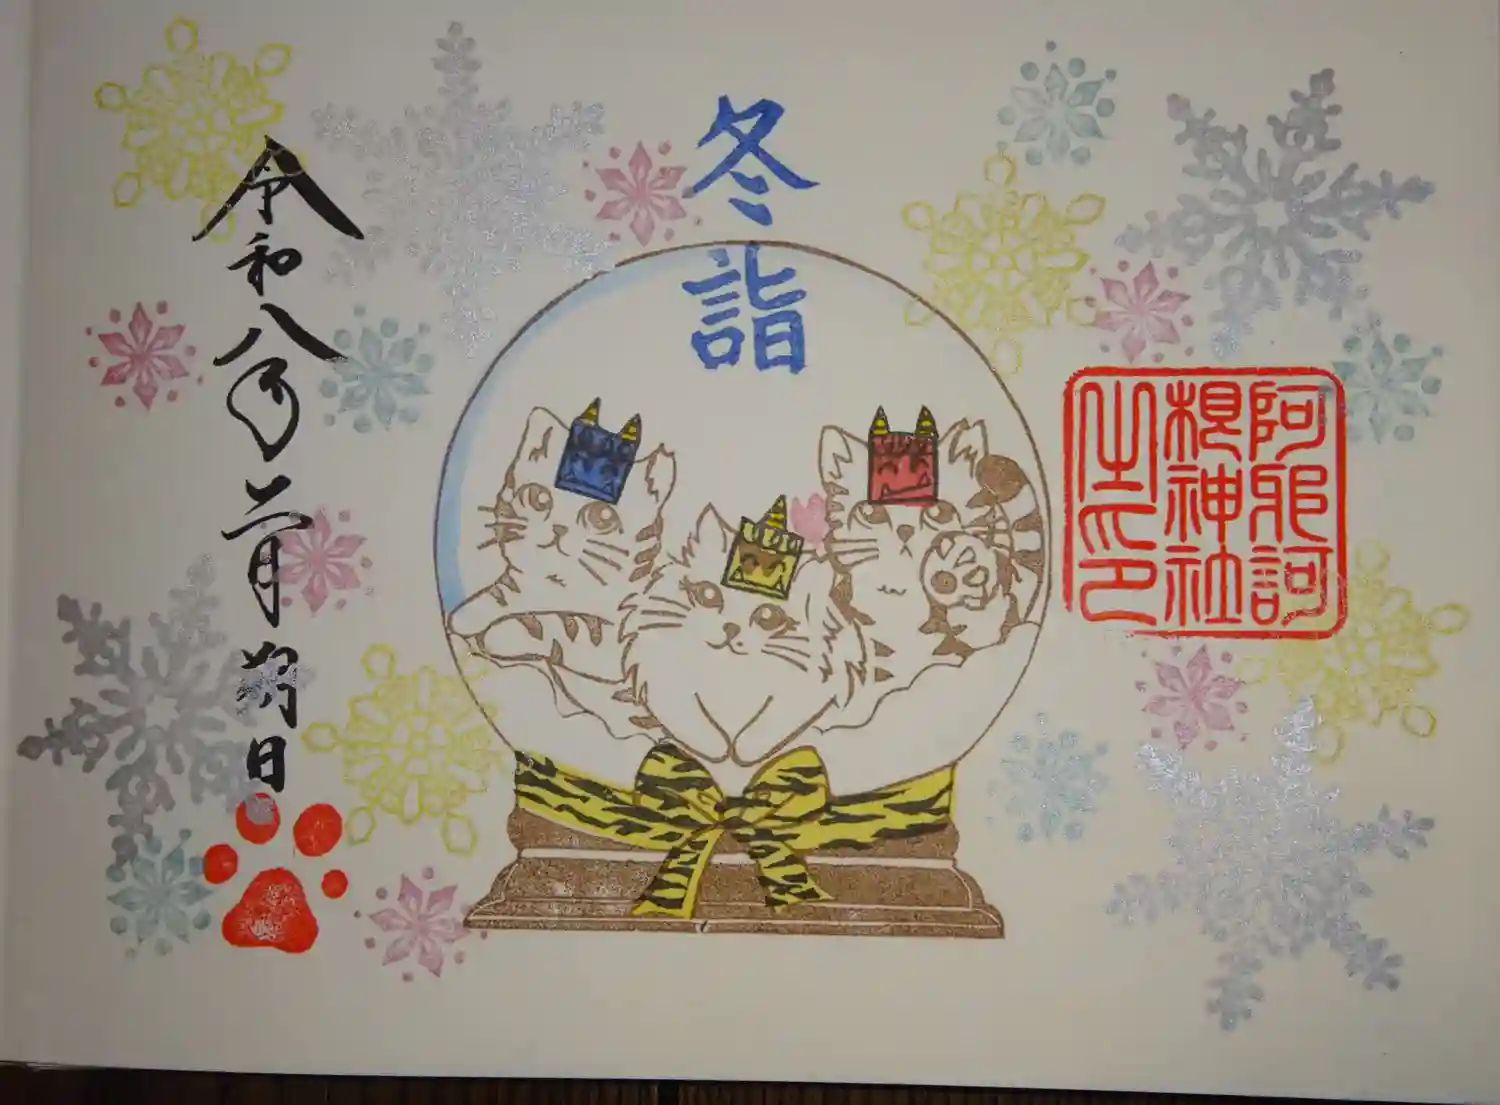 冬詣
阿邪訶
根神社
之印
令和八年二月朔日